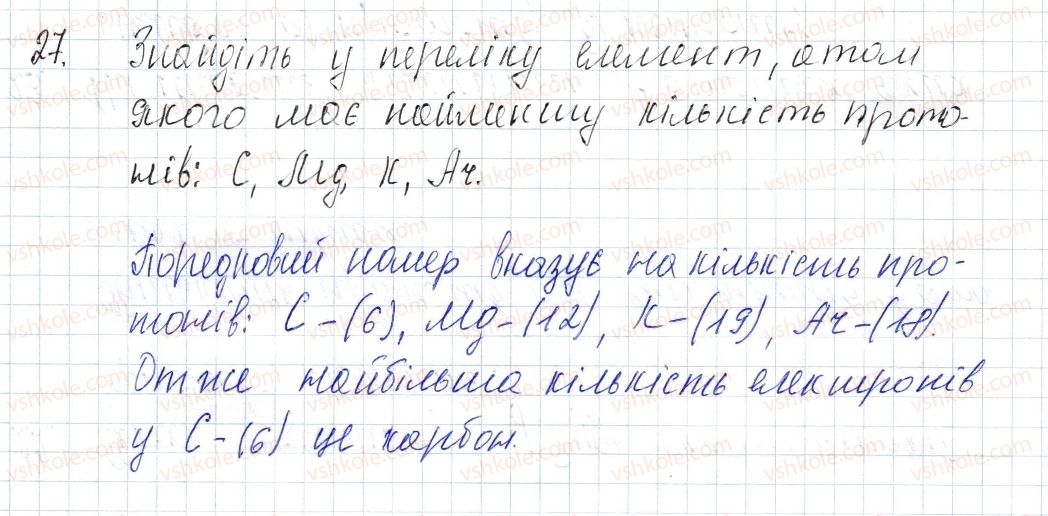 27. Знайдіть у переліку елемент, атом
якого має найменшу кількість прото-
нів: C, Mg, K, Ar.
Порядковий номер вказує на кількість про-
тонів: C - (6), Mg - (12), K - (19), Ar - (18).
Отже найбільша кількість електронів
у C - (6) це карбон.